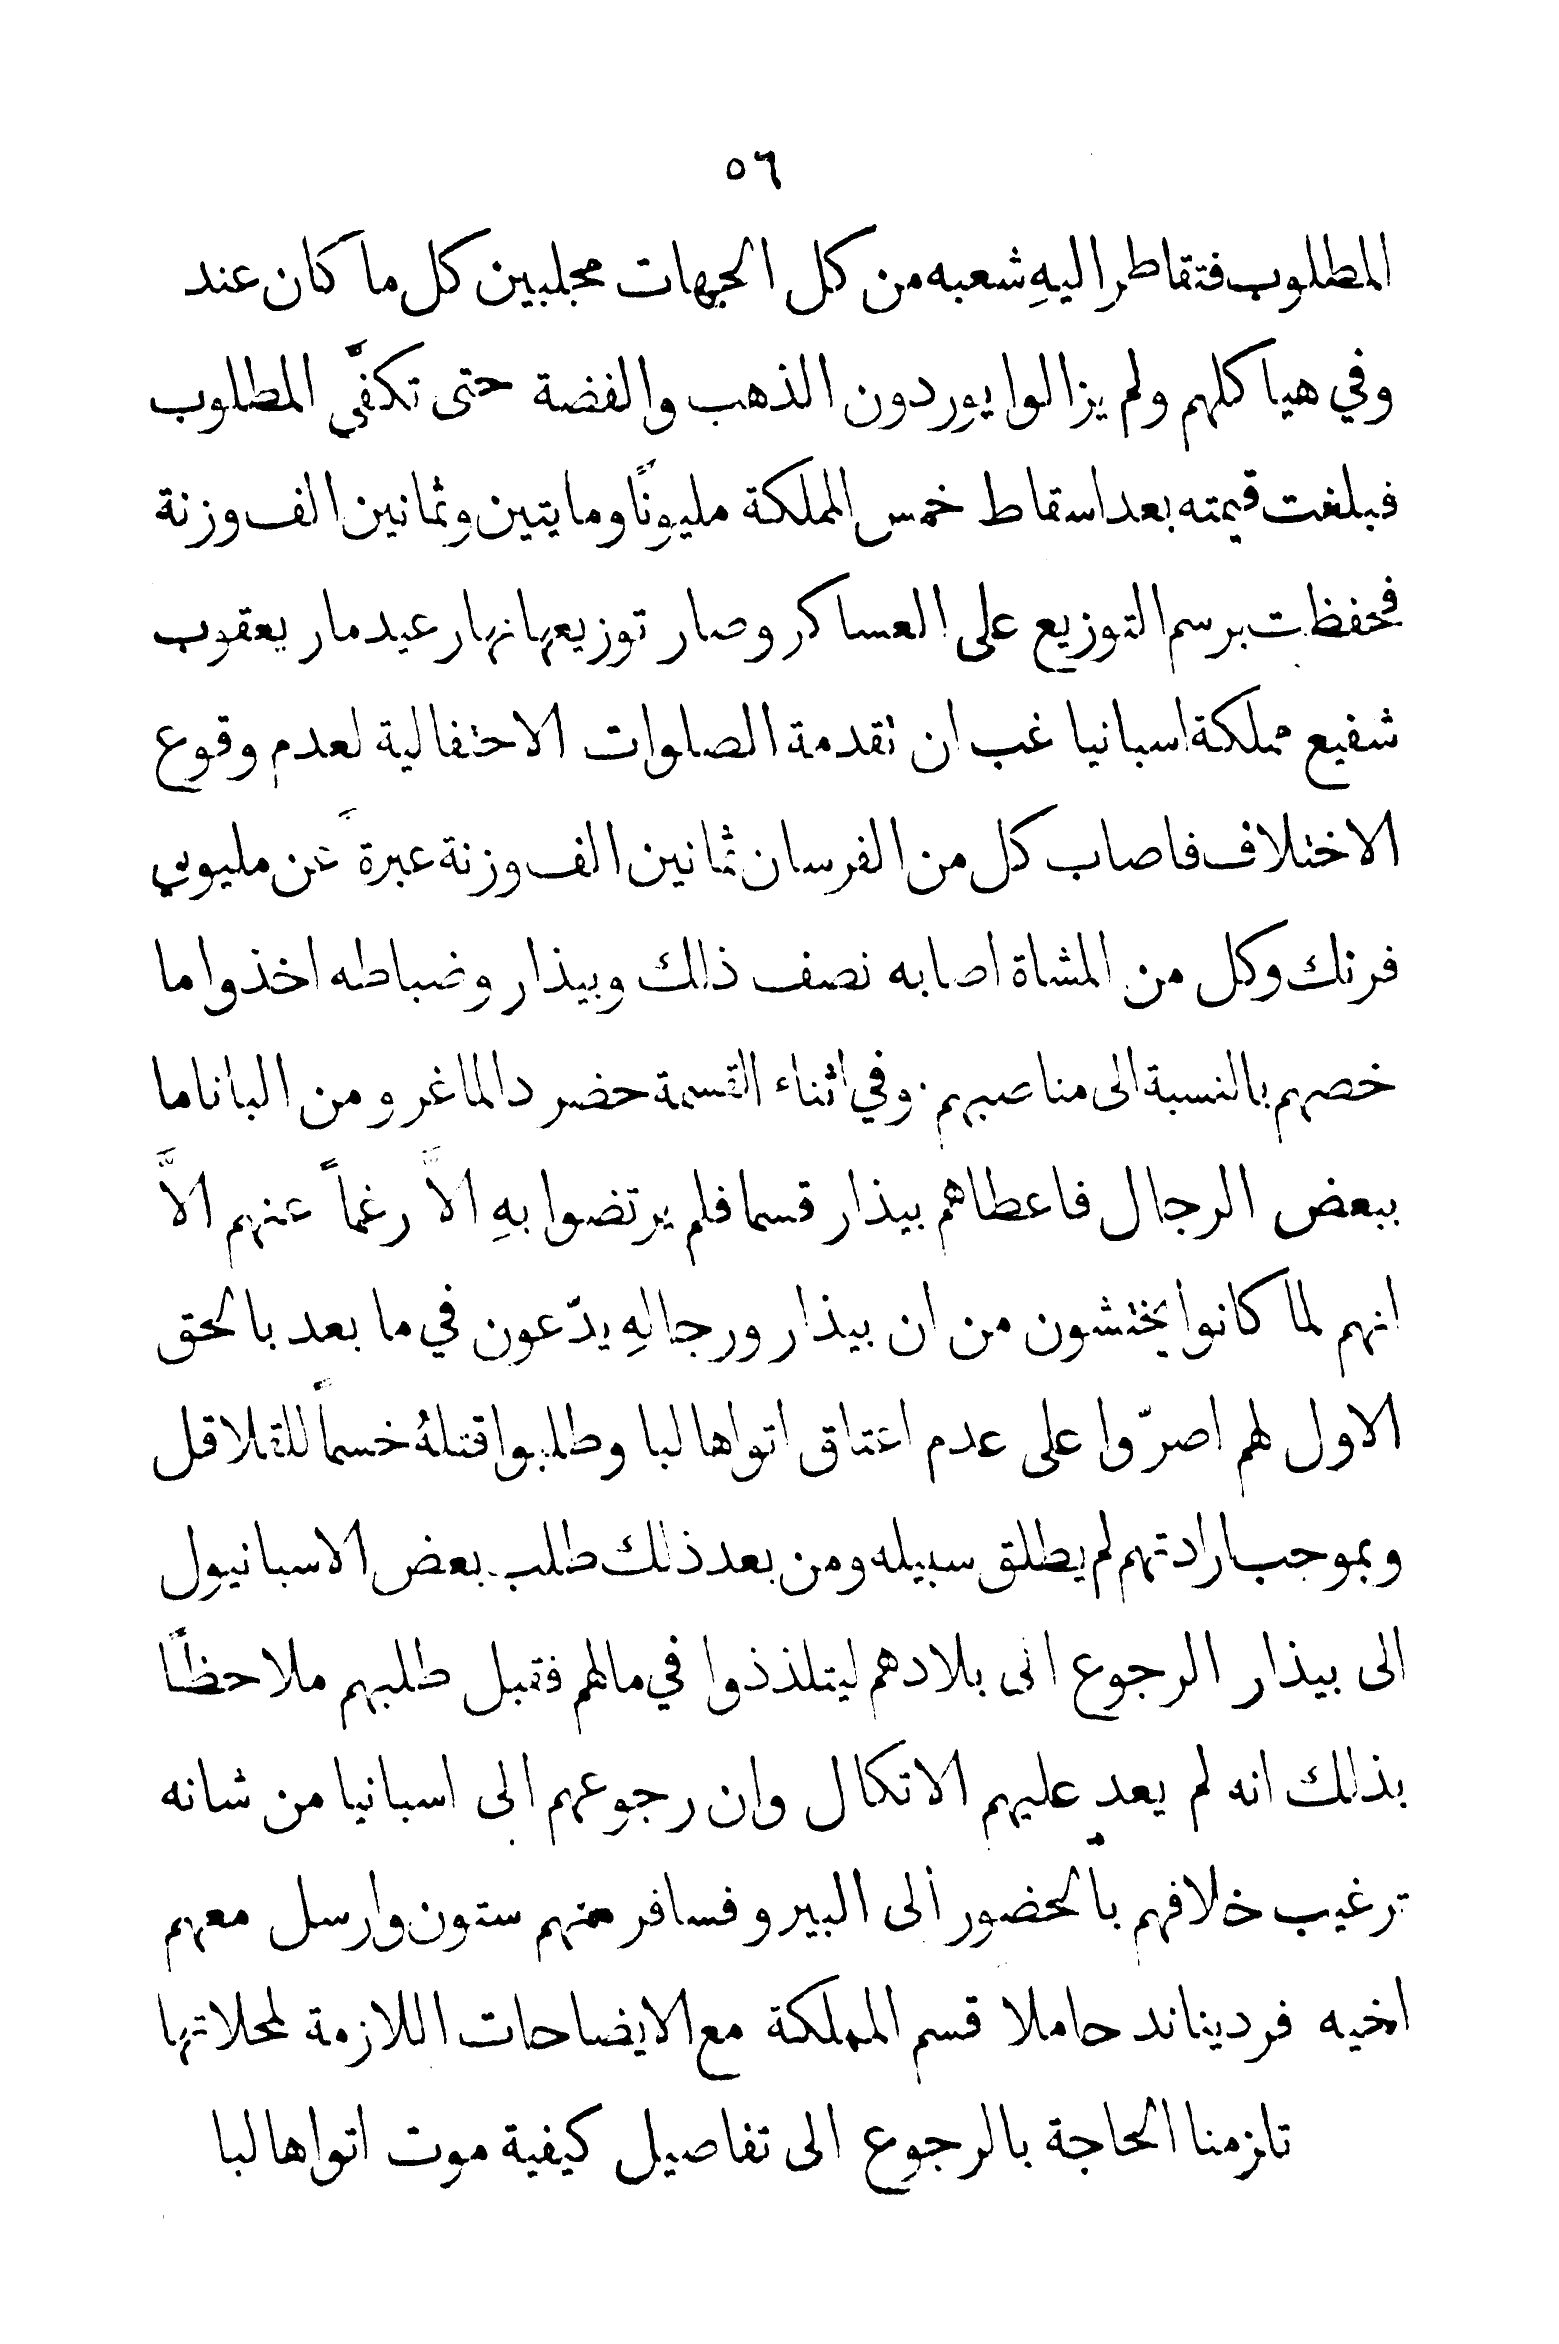 ٥٦
المطلوب فتقاطر اليهِ شعبه من كل الجهات مجلبين كل ما كان عند
وفي هياكلهم ولم يزالوا يوردون الذهب والفضة حتى تكفَّي المطلوب
فبلغت قيمته بعد اسقاط خمس المملكة مليونًا ومايتين وثمانين الف وزنة
فحفظت برسم التوزيع على العساكر وصار توزيعها نهار عيد مار يعقوب
شفيع مملكة اسبانيا غب ان تقدمة الصلوات الاحتفالية لعدم وقوع
الاختلاف فاصاب كل من الفرسان ثمانين الف وزنة عبرةً عن مليوني
فرنك وكل من المشاة اصابه نصف ذلك وبيذار وضباطه اخذوا ما
خصهم بالنسبة الى مناصبهم . وفي اثناء القسمة حضر دالماغرو من الباناما
ببعض الرجال فاعطاهم بيذار قسما فلم يرتضوا بهِ الاَّ رغماً عنهم الاَّ
انهم لما كانوا يختشون من ان بيذار ورجالهِ يدّعون في ما بعد بالحق
الاول لهم اصرّوا على عدم اعتاق اتواهالبا وطلبوا قتلهُ خسماً للقلاقل
وبموجب ارادتهم لم يطلق سبيله ومن بعد ذلك طلب بعض الاسبانيول
الى بيذار الرجوع الى بلادهم ليتلذذوا في مالهم فقبل طلبهم ملاحظًا
بذلك انه لم يعد عليهم الاتكال وان رجوعهم الى اسبانيا من شانه
ترغيب خلافهم بالحضور الى البيرو فسافر منهم ستون وارسل معهم
اخيه فرديناند حاملا قسم المملكة مع الايضاحات اللازمة لمحلاتها
تلزمنا الحاجة بالرجوع الى تفاصيل كيفية موت اتواهالبا